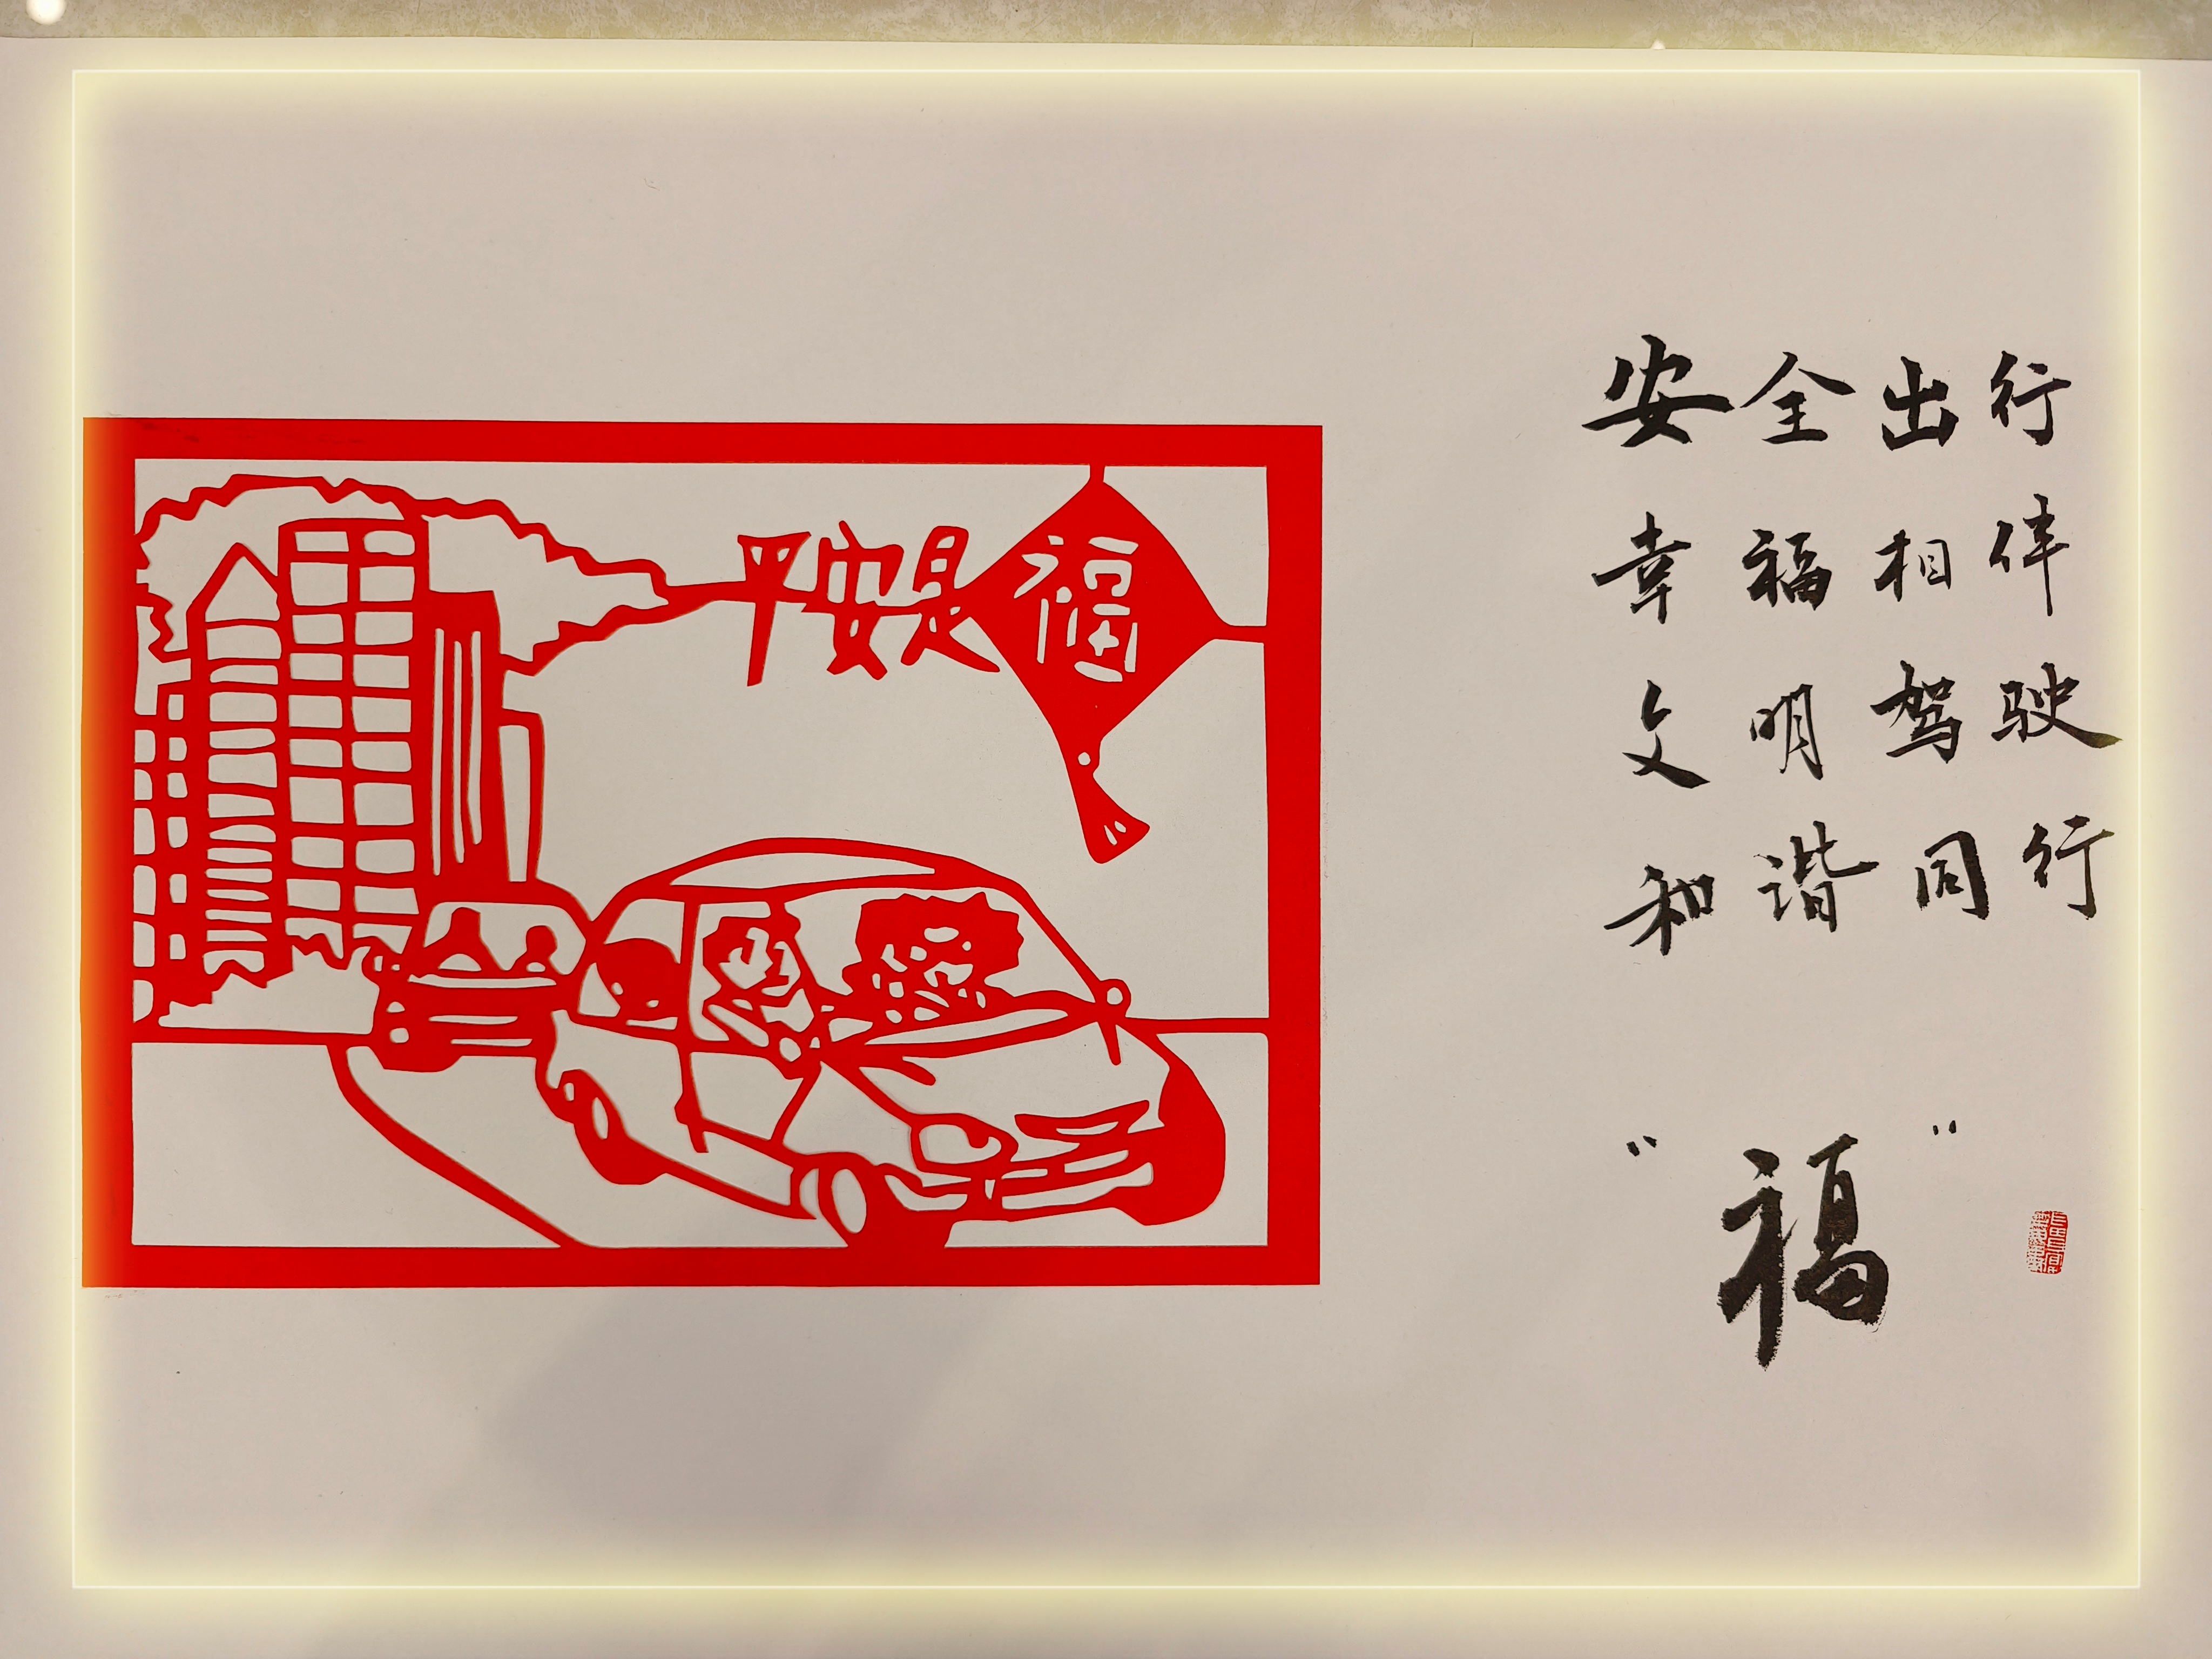 平安是福
安全出行
幸福相伴
文明驾驶
和谐同行
“福”